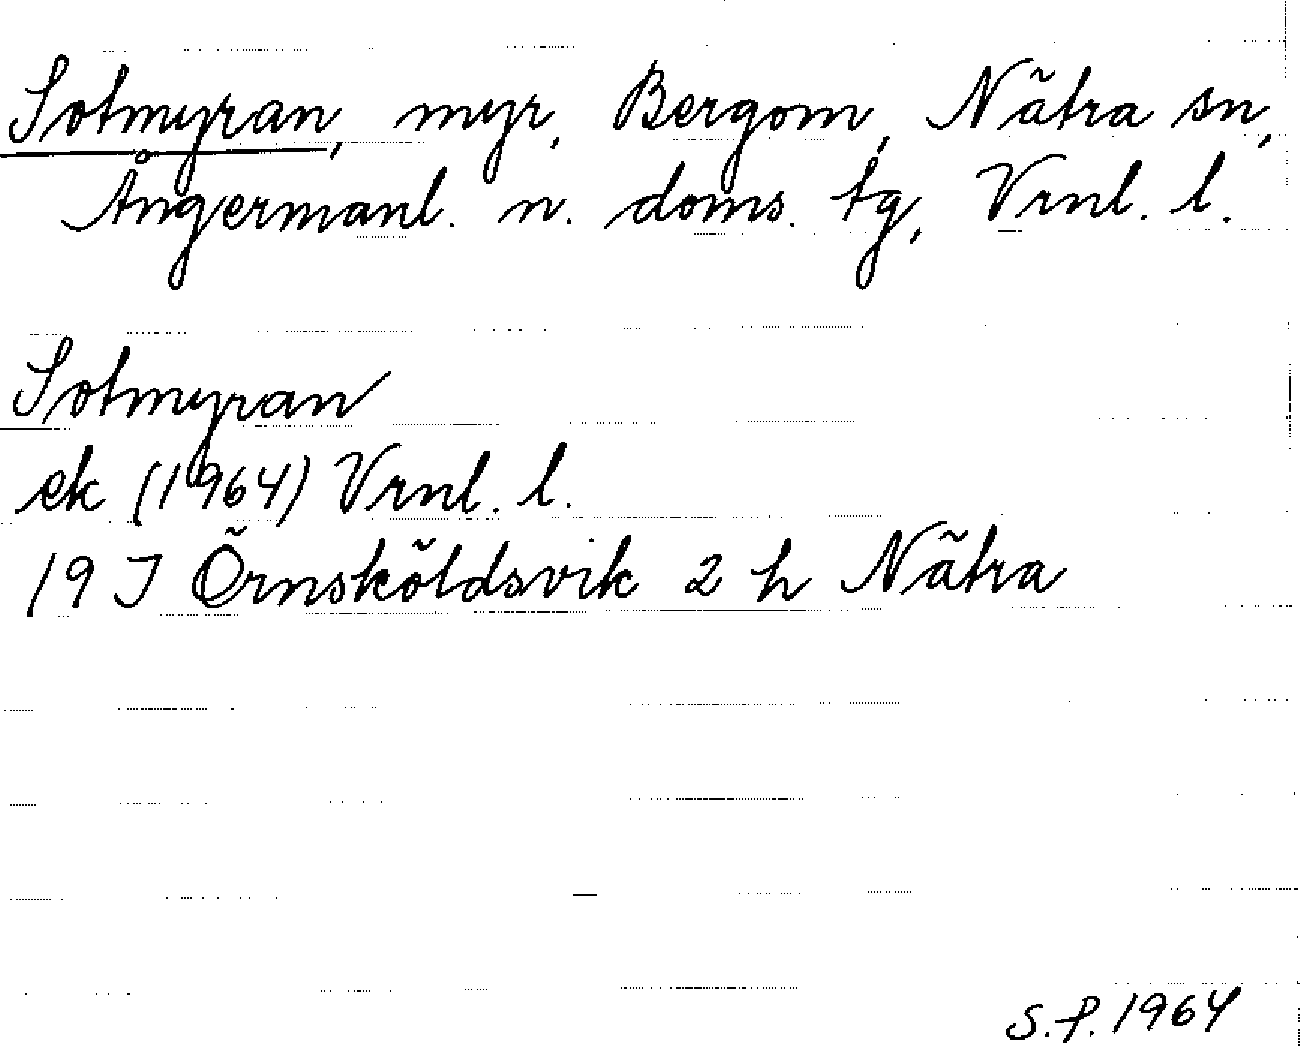 Sotmyran, myr, Bergom, Nätra sn,
Ångermanl. n. doms. tg, Vrnl. l.
Sotmyran
ek (1964) Vrnl. l.
19 J Örnsköldsvik 2 h Nätra
S.P. 1964